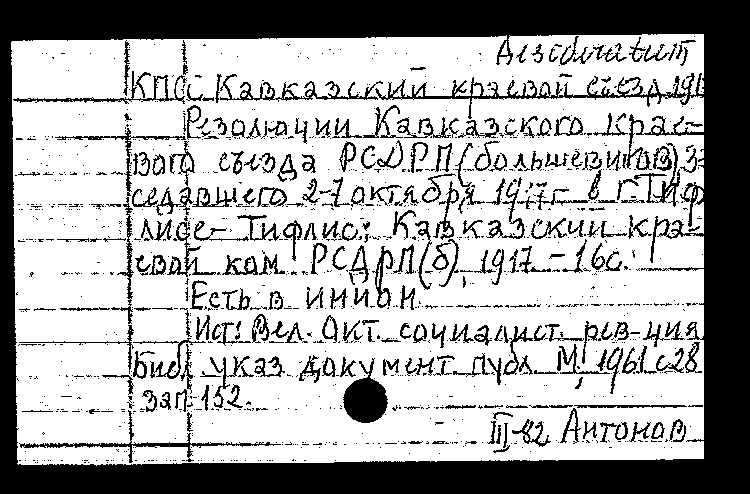 Desideratum
КПСС Кавказский краевой съезд 191
Резолюции Кавказского крае-
вого съезда РСДРП(большевиков), за
седавшего 2-7 октября 1917 г. в г. Тиф
лисе.- Тифлис: Кавказский кра-
евой ком. РСДРП(б), 1917.-16с.
Есть в ИНИОН
Ист: Вел. Окт. социалист. рев-ция
Библ. указ документ. публ М, 1961 с28
зап 152.
III-82 Антонов